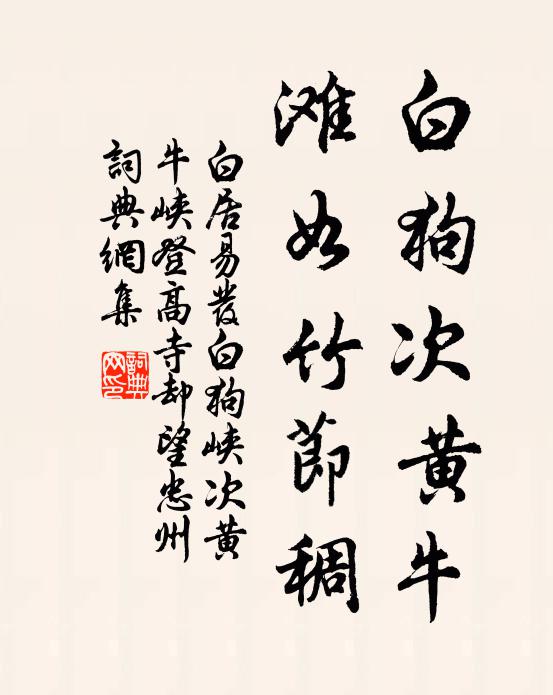 白狗次黄牛
滩如竹節稠
白居易發白狗峽次黄
牛峽登高寺却望忠州
詞典網集
詞典
网印